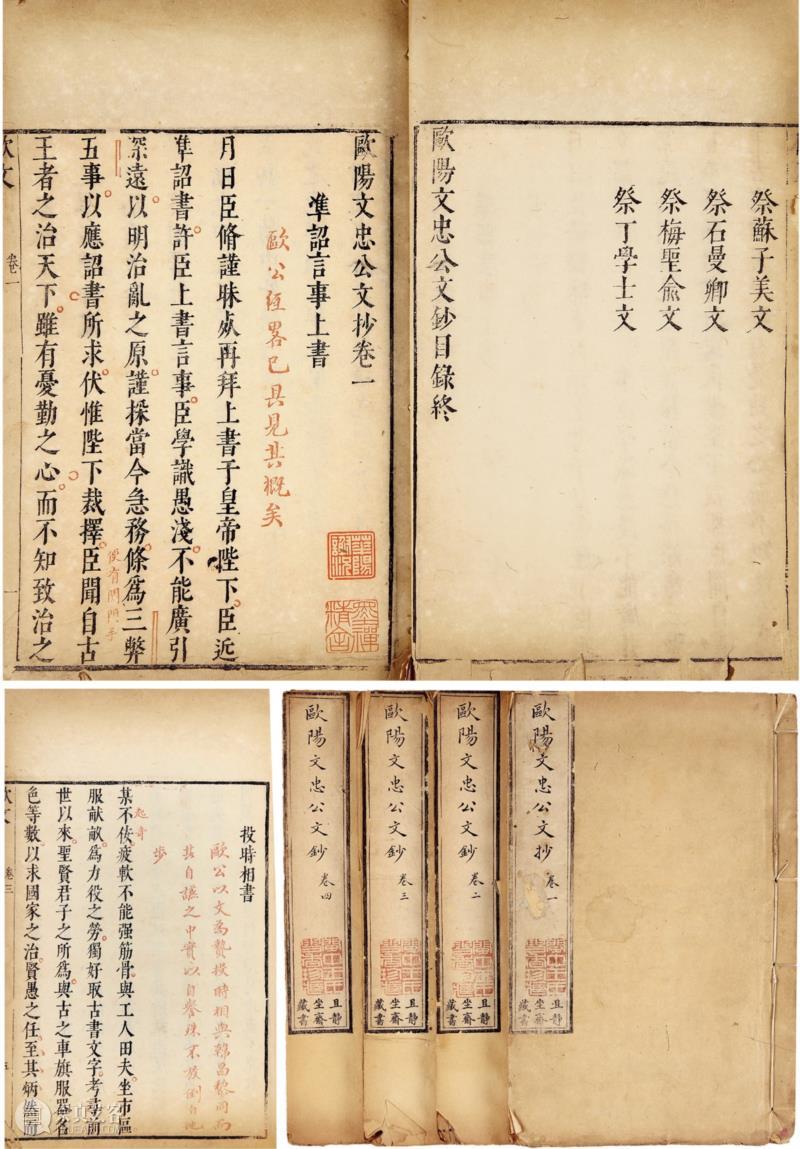 祭蘇子美文
祭石曼卿文
祭梅聖俞文
祭丁學士文
歐陽文忠公文鈔目錄終
歐陽文忠公文抄卷一
準詔言事上書
歐公經畧已具見其概矣
月日臣脩謹昧死再拜上書于皇帝陛下臣近
準詔書許臣上書言事臣學識愚淺不能廣引
深遠以明治亂之原謹採當今急務條爲三弊
五事以應詔書所求伏惟陛下裁擇臣聞自古
王者之治天下雖有憂勤之心而不知致治之
歐文
卷一
一
投時相書
歐公以文為贄投時相與韓昌黎同而
其自謙之中實以自譽殊不放倒自地
步
起奇
某不佞疲軟不能强筋骨與工人田夫坐市區
服献畝爲力役之勞獨好取古書文字考尋前
世以來聖賢君子之所爲與古之車旗服器名
色等數以求國家之治賢愚之任至其炳然而
歐文
卷三
歐陽文忠公文抄 卷一
且靜
坐齋
藏書
歐陽文忠公文鈔 卷二
且靜
坐齋
藏書
歐陽文忠公文鈔 卷三
且靜
坐齋
藏書
歐陽文忠公文鈔 卷四
且靜
坐齋
藏書